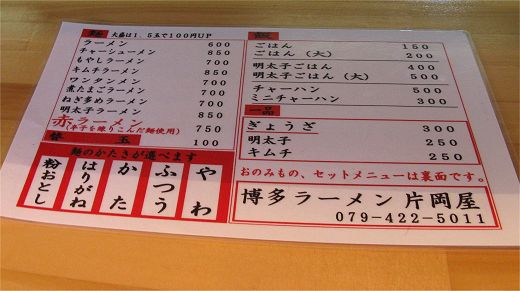 麺 大盛は1、5玉で100円UP
ラーメン 600
チャーシューメン 850
もやしラーメン 700
キムチラーメン 850
ワンタンメン 700
煮たまごラーメン 700
ねぎ多めラーメン 700
明太子ラーメン 850
赤ラーメン 750
(辛子を練りこんだ麺使用)
替玉 100
麺のかたさが選べます
やわ
ふつう
かた
はりがね
粉おとし
飯
ごはん 150
ごはん(大) 200
明太子ごはん 400
明太子ごはん(大) 500
チャーハン 500
ミニチャーハン 300
一品
ぎょうざ 300
明太子 250
キムチ 250
おのみもの、セットメニューは裏面です。
博多ラーメン 片岡屋
079-422-5011